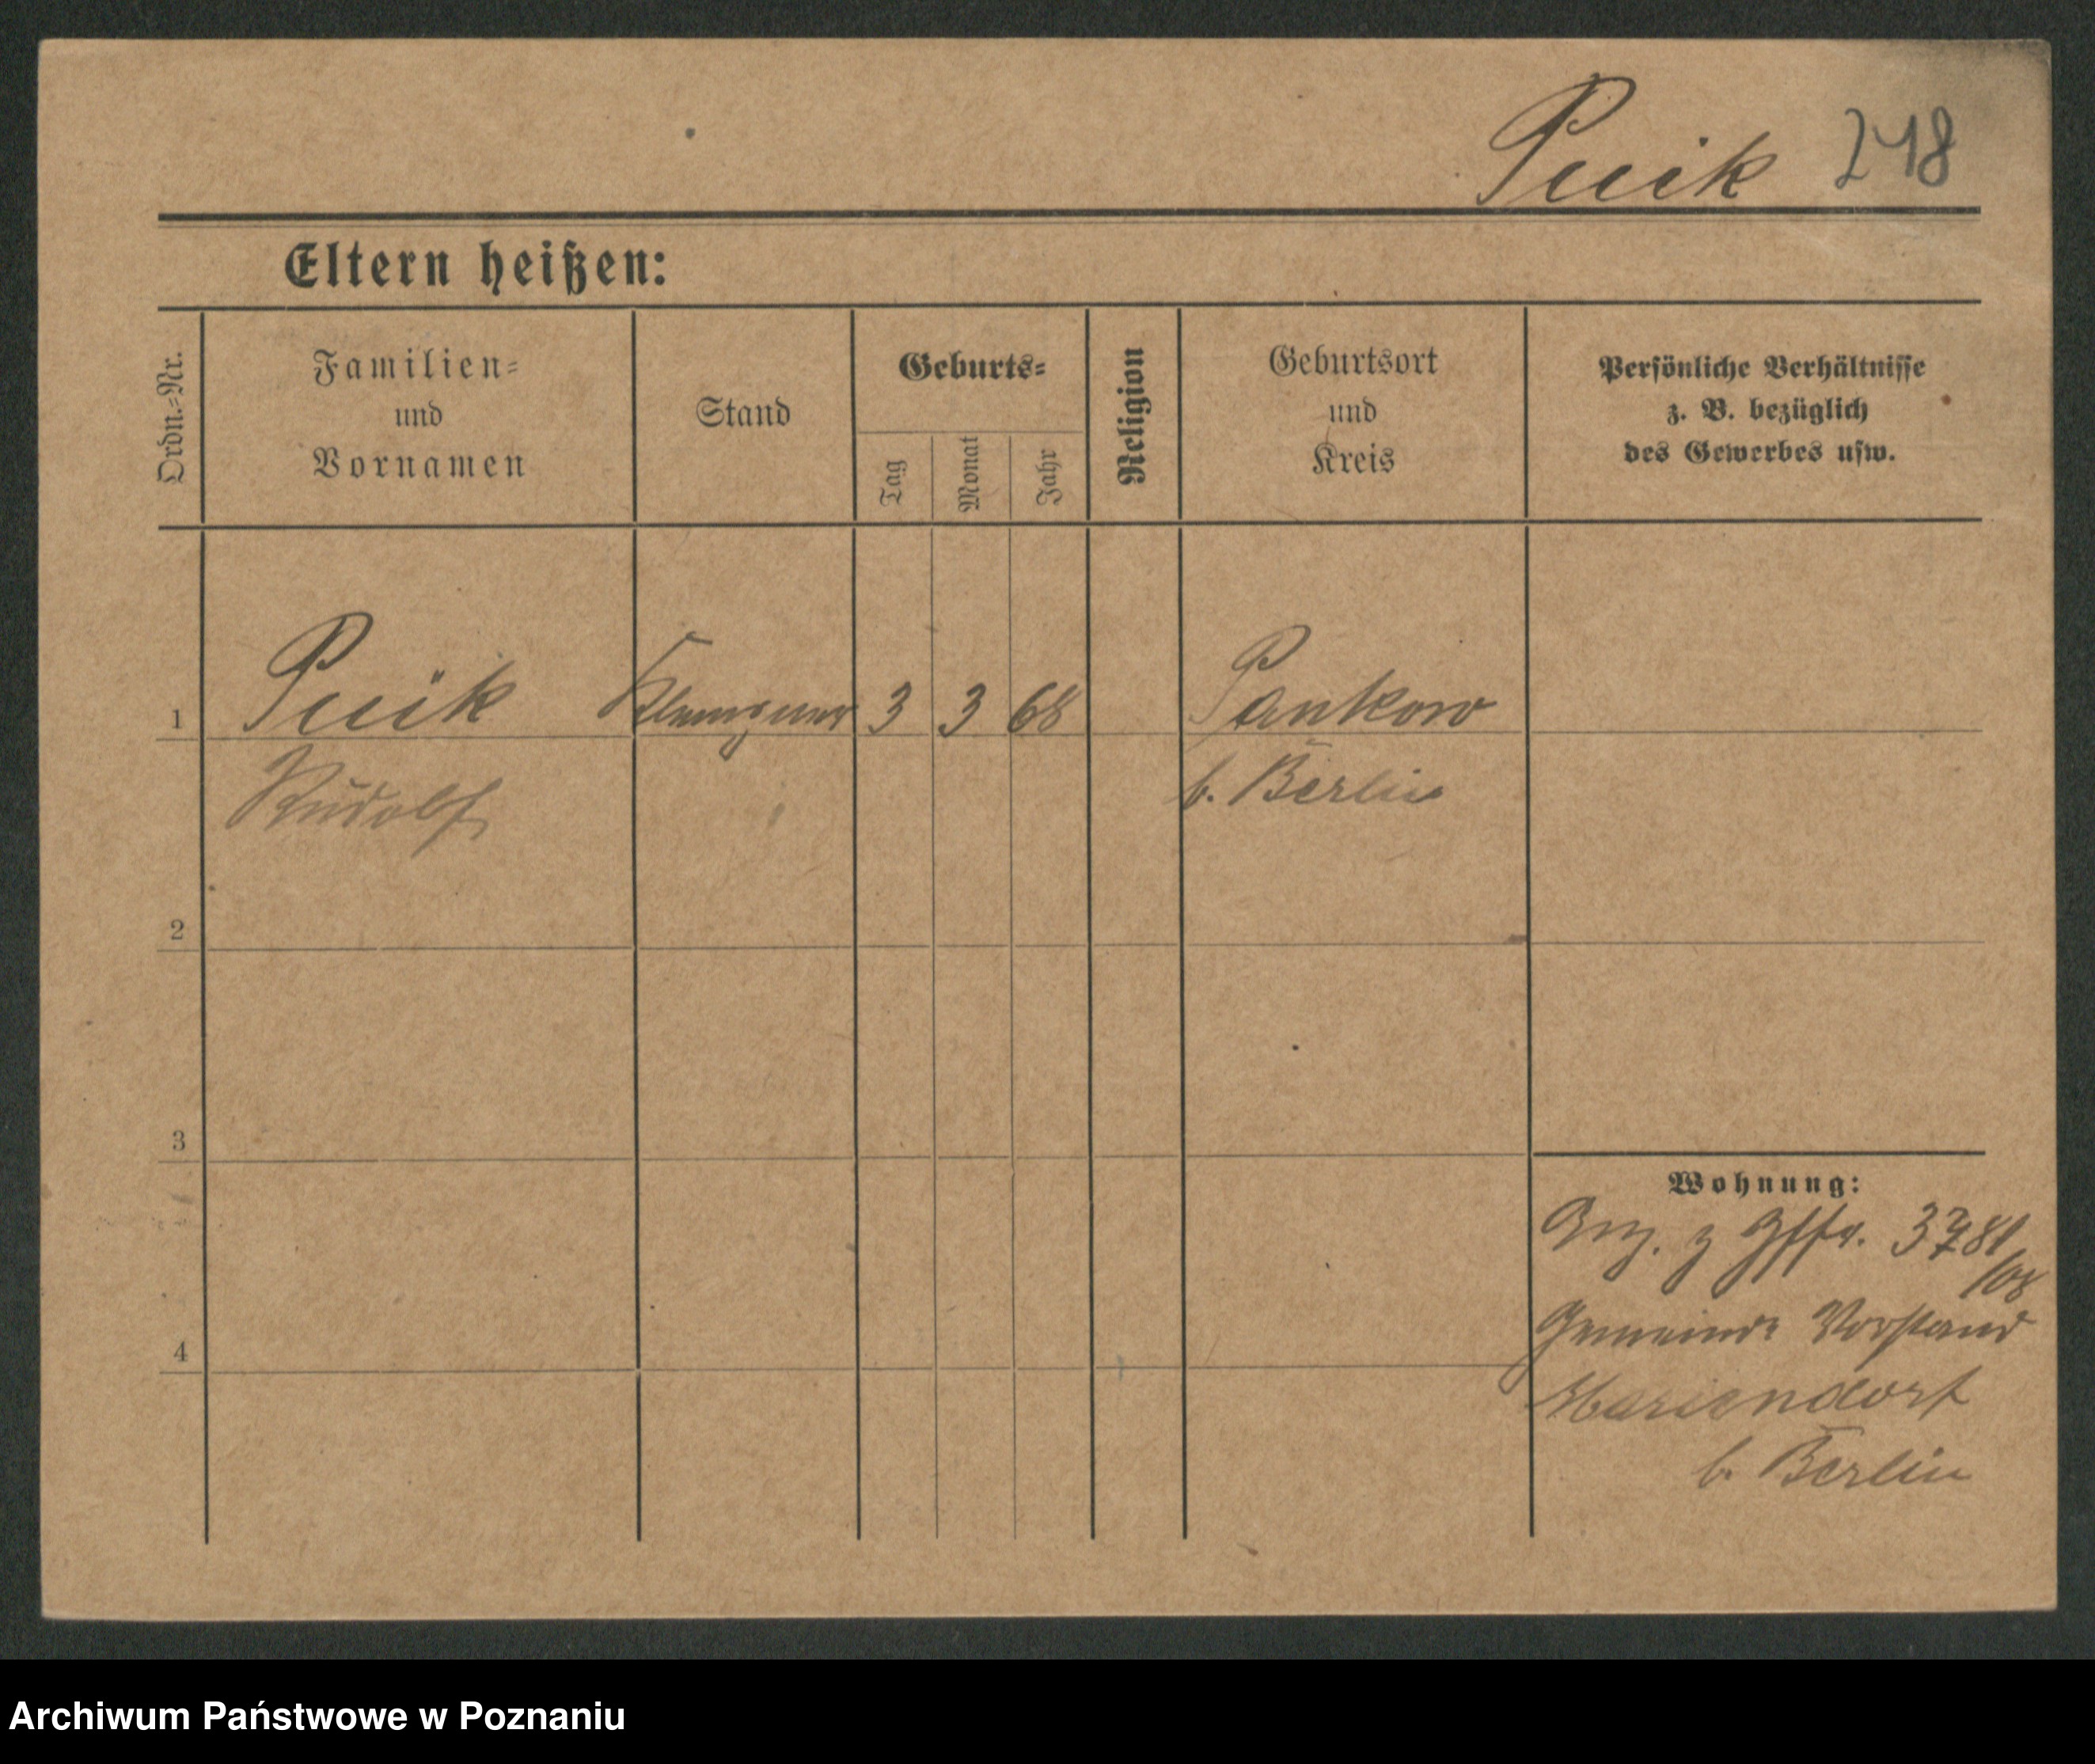 Puik 248
Eltern heißen:
Ordn.-Nr.
Familien-
und
Vornamen
Stand
Geburts-
Tag
Monat
Jahr
Religion
Geburtsort
und
Kreis
Persönliche Verhältnisse
z. B. bezüglich
des Gewerbes usw.
1 Puik Klempner 3 3 68 Pankow
Rudolf b. Berlin
2
3
Wohnung:
3781
/08
4 Gemeinde Vorstand
Mariendorf
b. Berlin
Archiwum Państwowe w Poznaniu